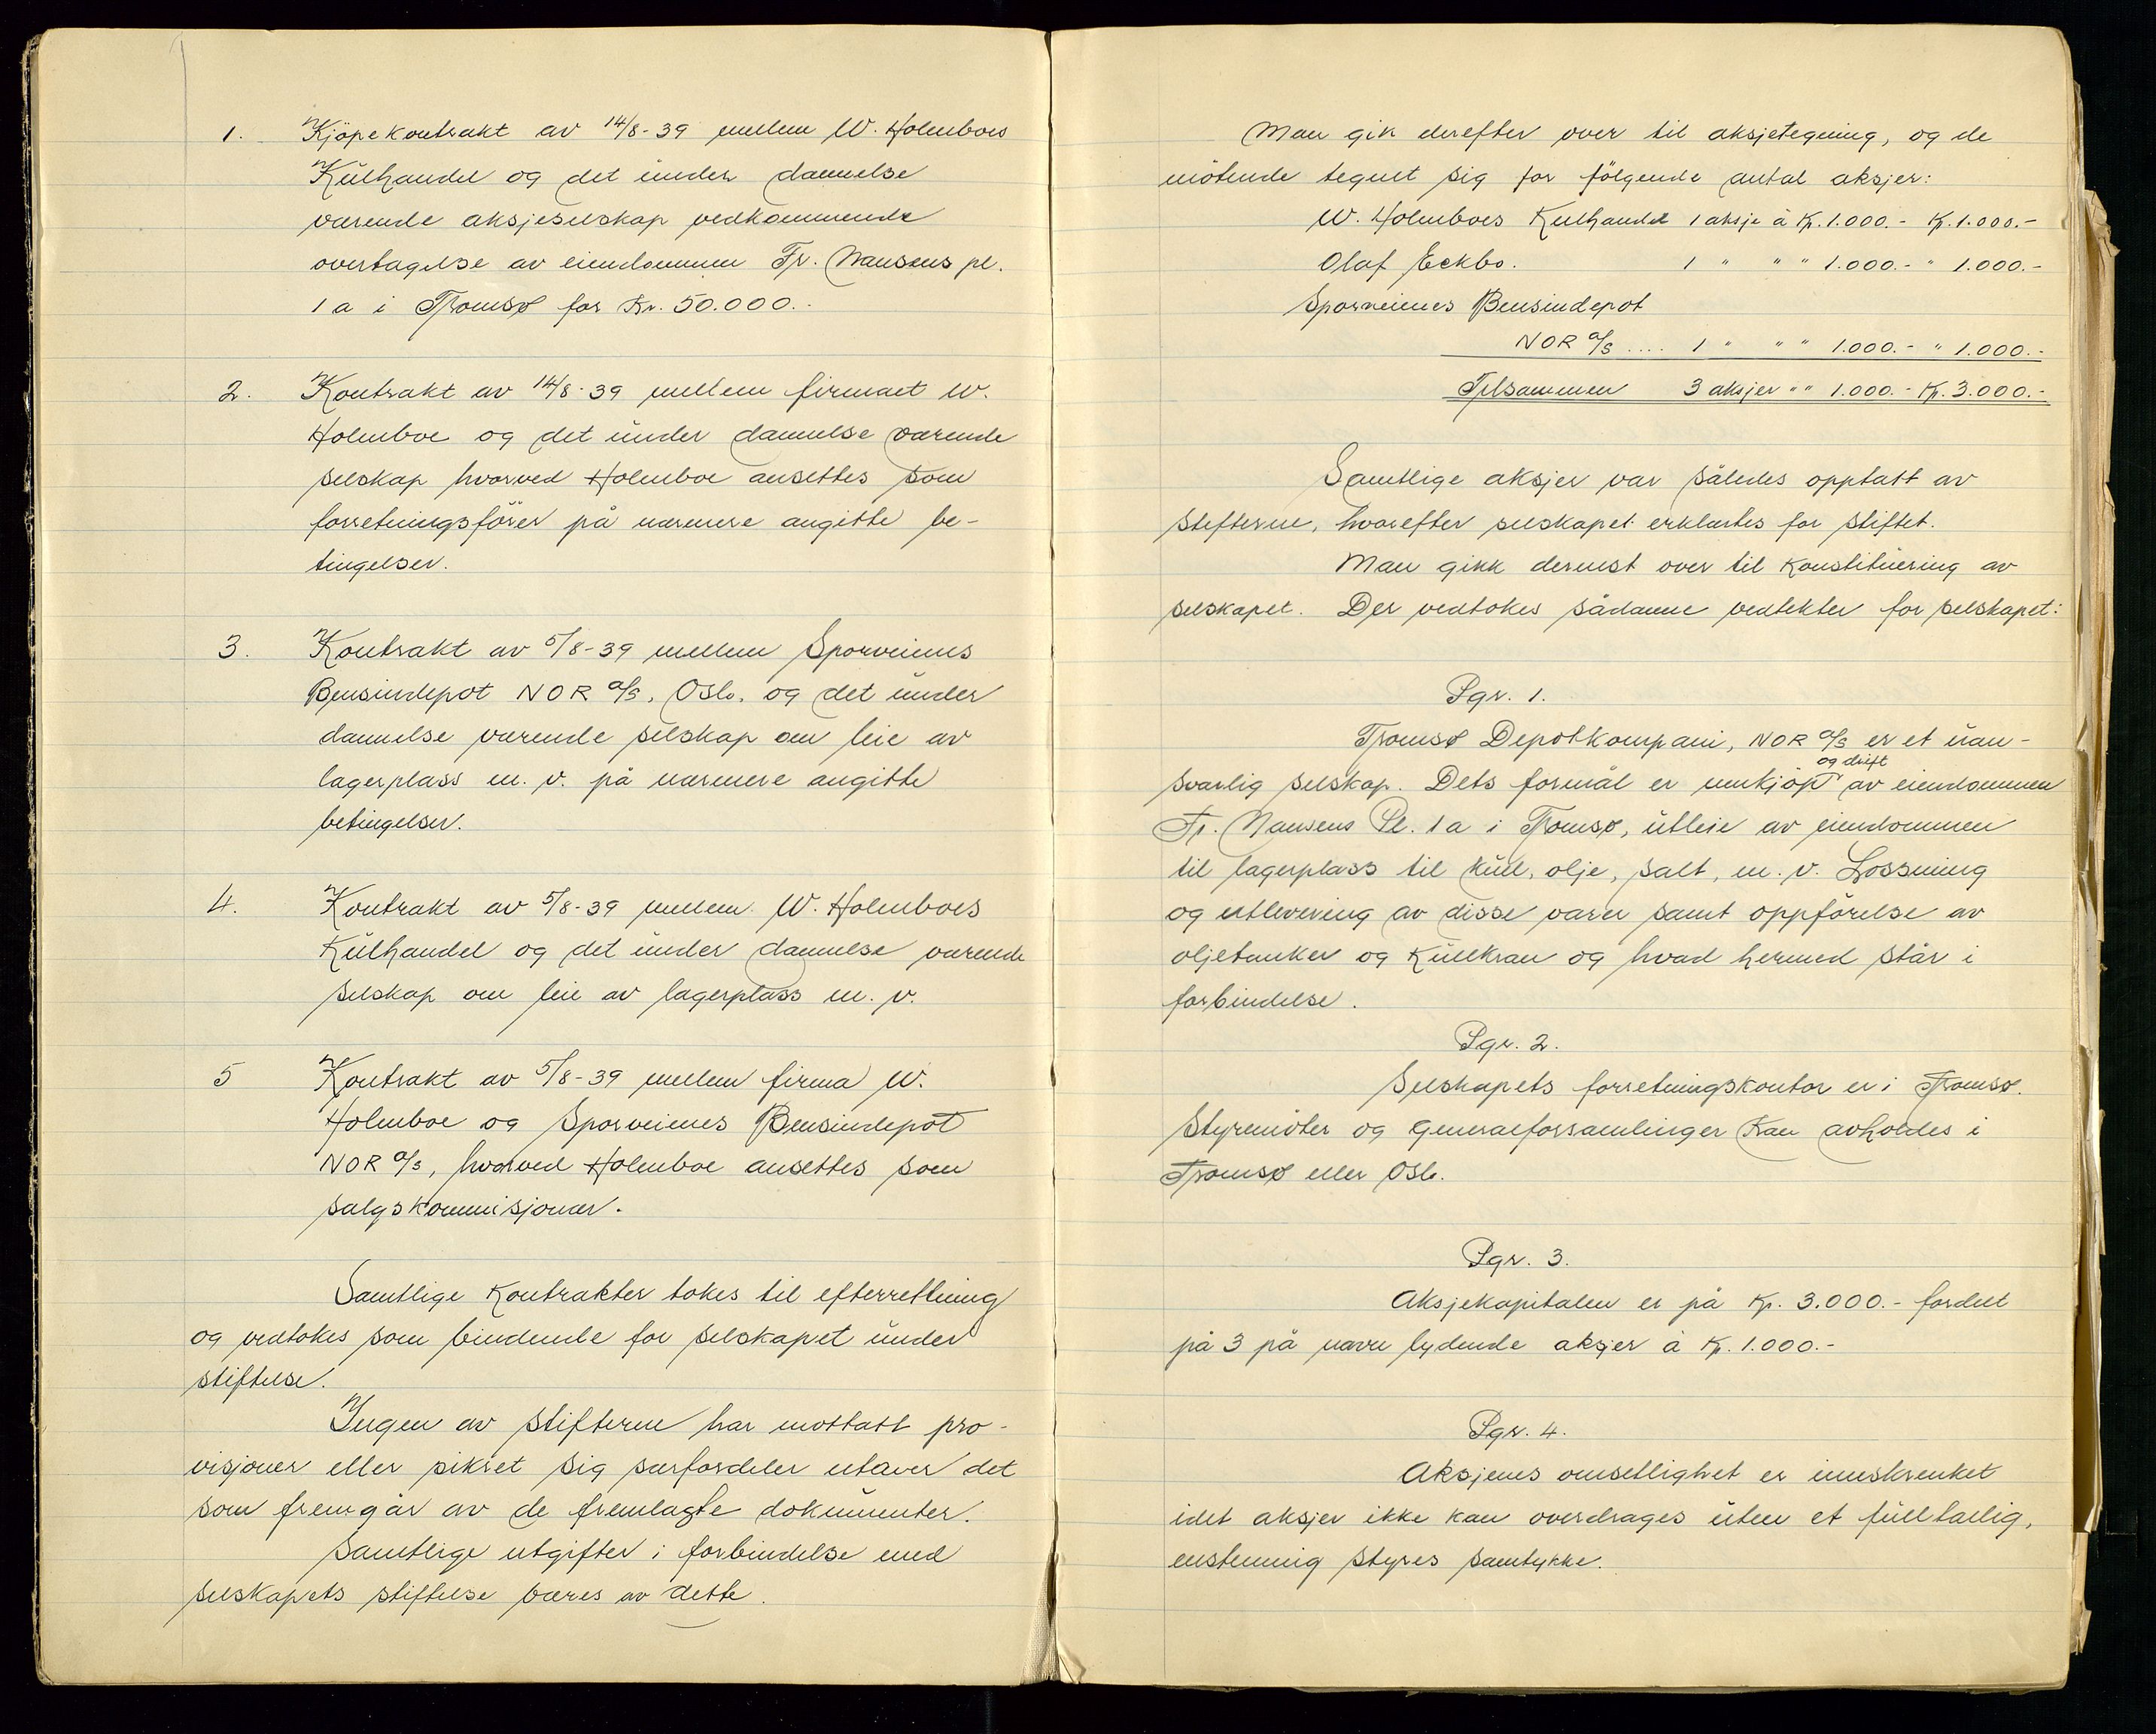 1. Kjöpekontrakt av 14/8-39 mellem W. Holmboes
Kulhandel og det under dannelse
værende aksjeselskap vedkommende
overtagelse av eiendommen Fr. Nansens pl.
1 a i Tromsø for Kr. 50.000.-
2. Kontrakt av 14/8-39 mellem firmaet W.
Holmboe og det under dannelse værende
selskap hvorved Holmboe ansettes som
forretningsförer på nærmere angitte be-
tingelser.
3. Kontrakt av 5/8-39 mellem Sporveienes
Bensindepot NOR A/S, Oslo, og det under
dannelse værende selskap om leie av
lagerplass m. v. på nærmere angitte
betingelser.
4. Kontrakt av 5/8-39 mellem W. Holmboes
Kulhandel og det under dannelse værende
selskap om leie av lagerplass m. v.
5 Kontrakt av 5/8-39 mellem firma W.
Holmboe og Sporveienes Bensindepot
NOR A/S, hvorved Holmboe ansettes som
salgskommisjonær.
Samtlige kontrakter tokes til efterretning
og vedtokes som bindende for selskapet under
stiftelse.
Ingen av stifterne har mottatt pro-
visjoner eller sikret sig særfordeler utover det
som fremgår av de fremlagte dokumenter.
Samtlige utgifter i forbindelse med
selskapets stiftelse bæres av dette.
Man gik derefter over til aksjetegning, og de
mötende tegnet sig for fölgende antal aksjer:
W. Holmboes Kulhandel 1 aksje à Kr. 1.000.- Kr. 1.000.-
Olaf Eckbo. 1 " " " 1.000.- " 1.000.-
Sporveienes Bensindepot
NOR A/S .... 1 " " " 1.000.- " 1.000.-
Tilsammen 3 aksjer " " 1.000.- Kr. 3.000.-
Samtlige aksjer var således opptatt av
stifterne, hvorefter selskapet erklærtes for stiftet.
Man gikk dernest over til konstituering av
selskapet. Der vedtokes sådanne vedtekter for selskapet:
Pgr. 1.
Tromsø Depotkompani, NOR A/S er et uan-
og drift
svarlig selskap. Dets formål er innkjöp av eiendommen
Fr. Nansens Pl. 1 a i Tromsø, utleie av eiendommen
til lagerplass til kull, olje, salt, m. v. Lossning
og utlevering av disse varer samt oppförelse av
oljetanker og kullkran og hvad hermed står i
forbindelse.
Pgr. 2.
Selskapets forretningskontor er i Tromsø.
Styremöter og Generalforsamlinger kan avholdes i
Tromsø eller Oslo.
Pgr. 3.
Aksjekapitalen er på Kr. 3.000.- fordelt
på 3 på navn lydende aksjer à Kr. 1.000.-
Pgr. 4.
Aksjenes omsettlighet er innskrenket
idet aksjer ikke kan overdrages uten et fulltallig,
enstemmig styres samtykke.